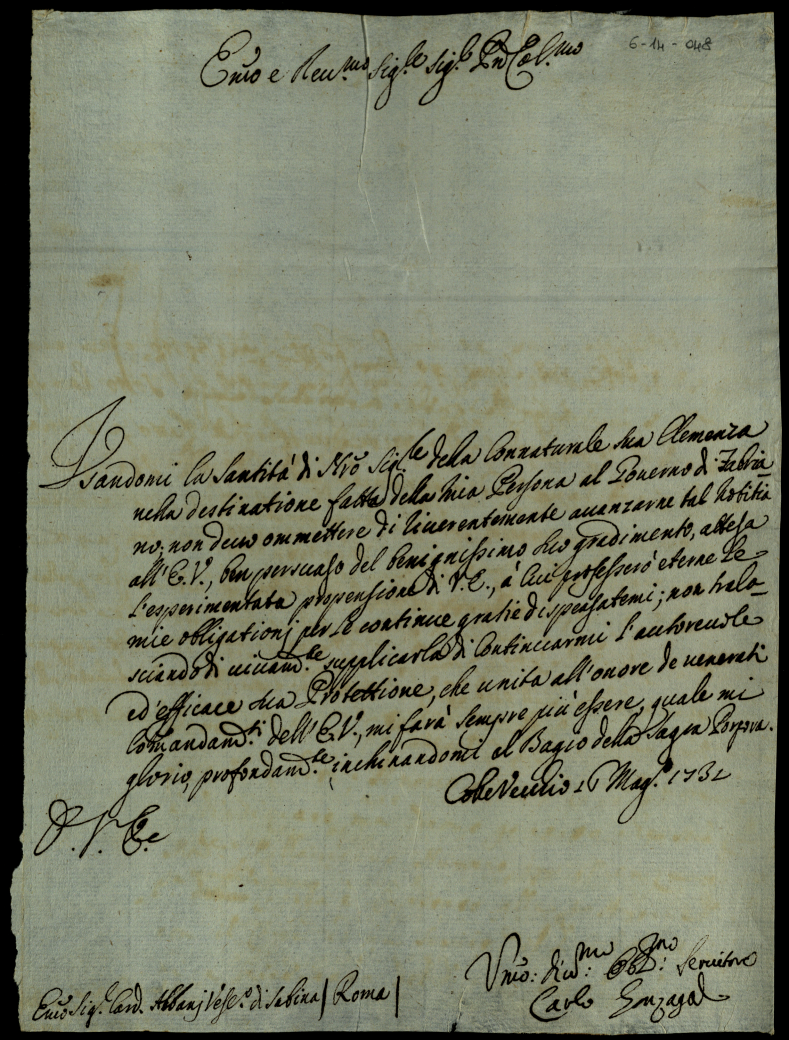 6-14-048
Em̃o e Reu.mo Sig.re Sig.re Pñ Col.mo
Usandomi la Santità di Nr̃o Sig.re della Connaturale sua Clemenza
nella destinatione fatta della mia Persona al Gouerno di Fabria-
no; non deuo ommettere di riuerentemente auanzarne tal notitia
all'E.V., ben persuaso del benignissimo suo gradimento, attesa
l'esperimentata propensione di V.E., à cui professerò eterne le
mie obligationj per le continue gratie dispensatemi; non trala-
sciando di uiuam.te supplicarla di Continuarmi l'autoreuole
ed'efficace sua Protettione, che unita all'onore de uenerati
Comandam.ti dell'E.V., mi farà sempre più essere, quale mi
glorio, profondam.te inchinandomi al Bagio della Sagra Porpora.
Mag.o 1731
D. V. E.
Vm̃o: diu.mo Obb.mo Seruitore
Carlo Gonzaga
Em̃o Sig.r Card. Albanj Vesc.o di Sabina / Roma /